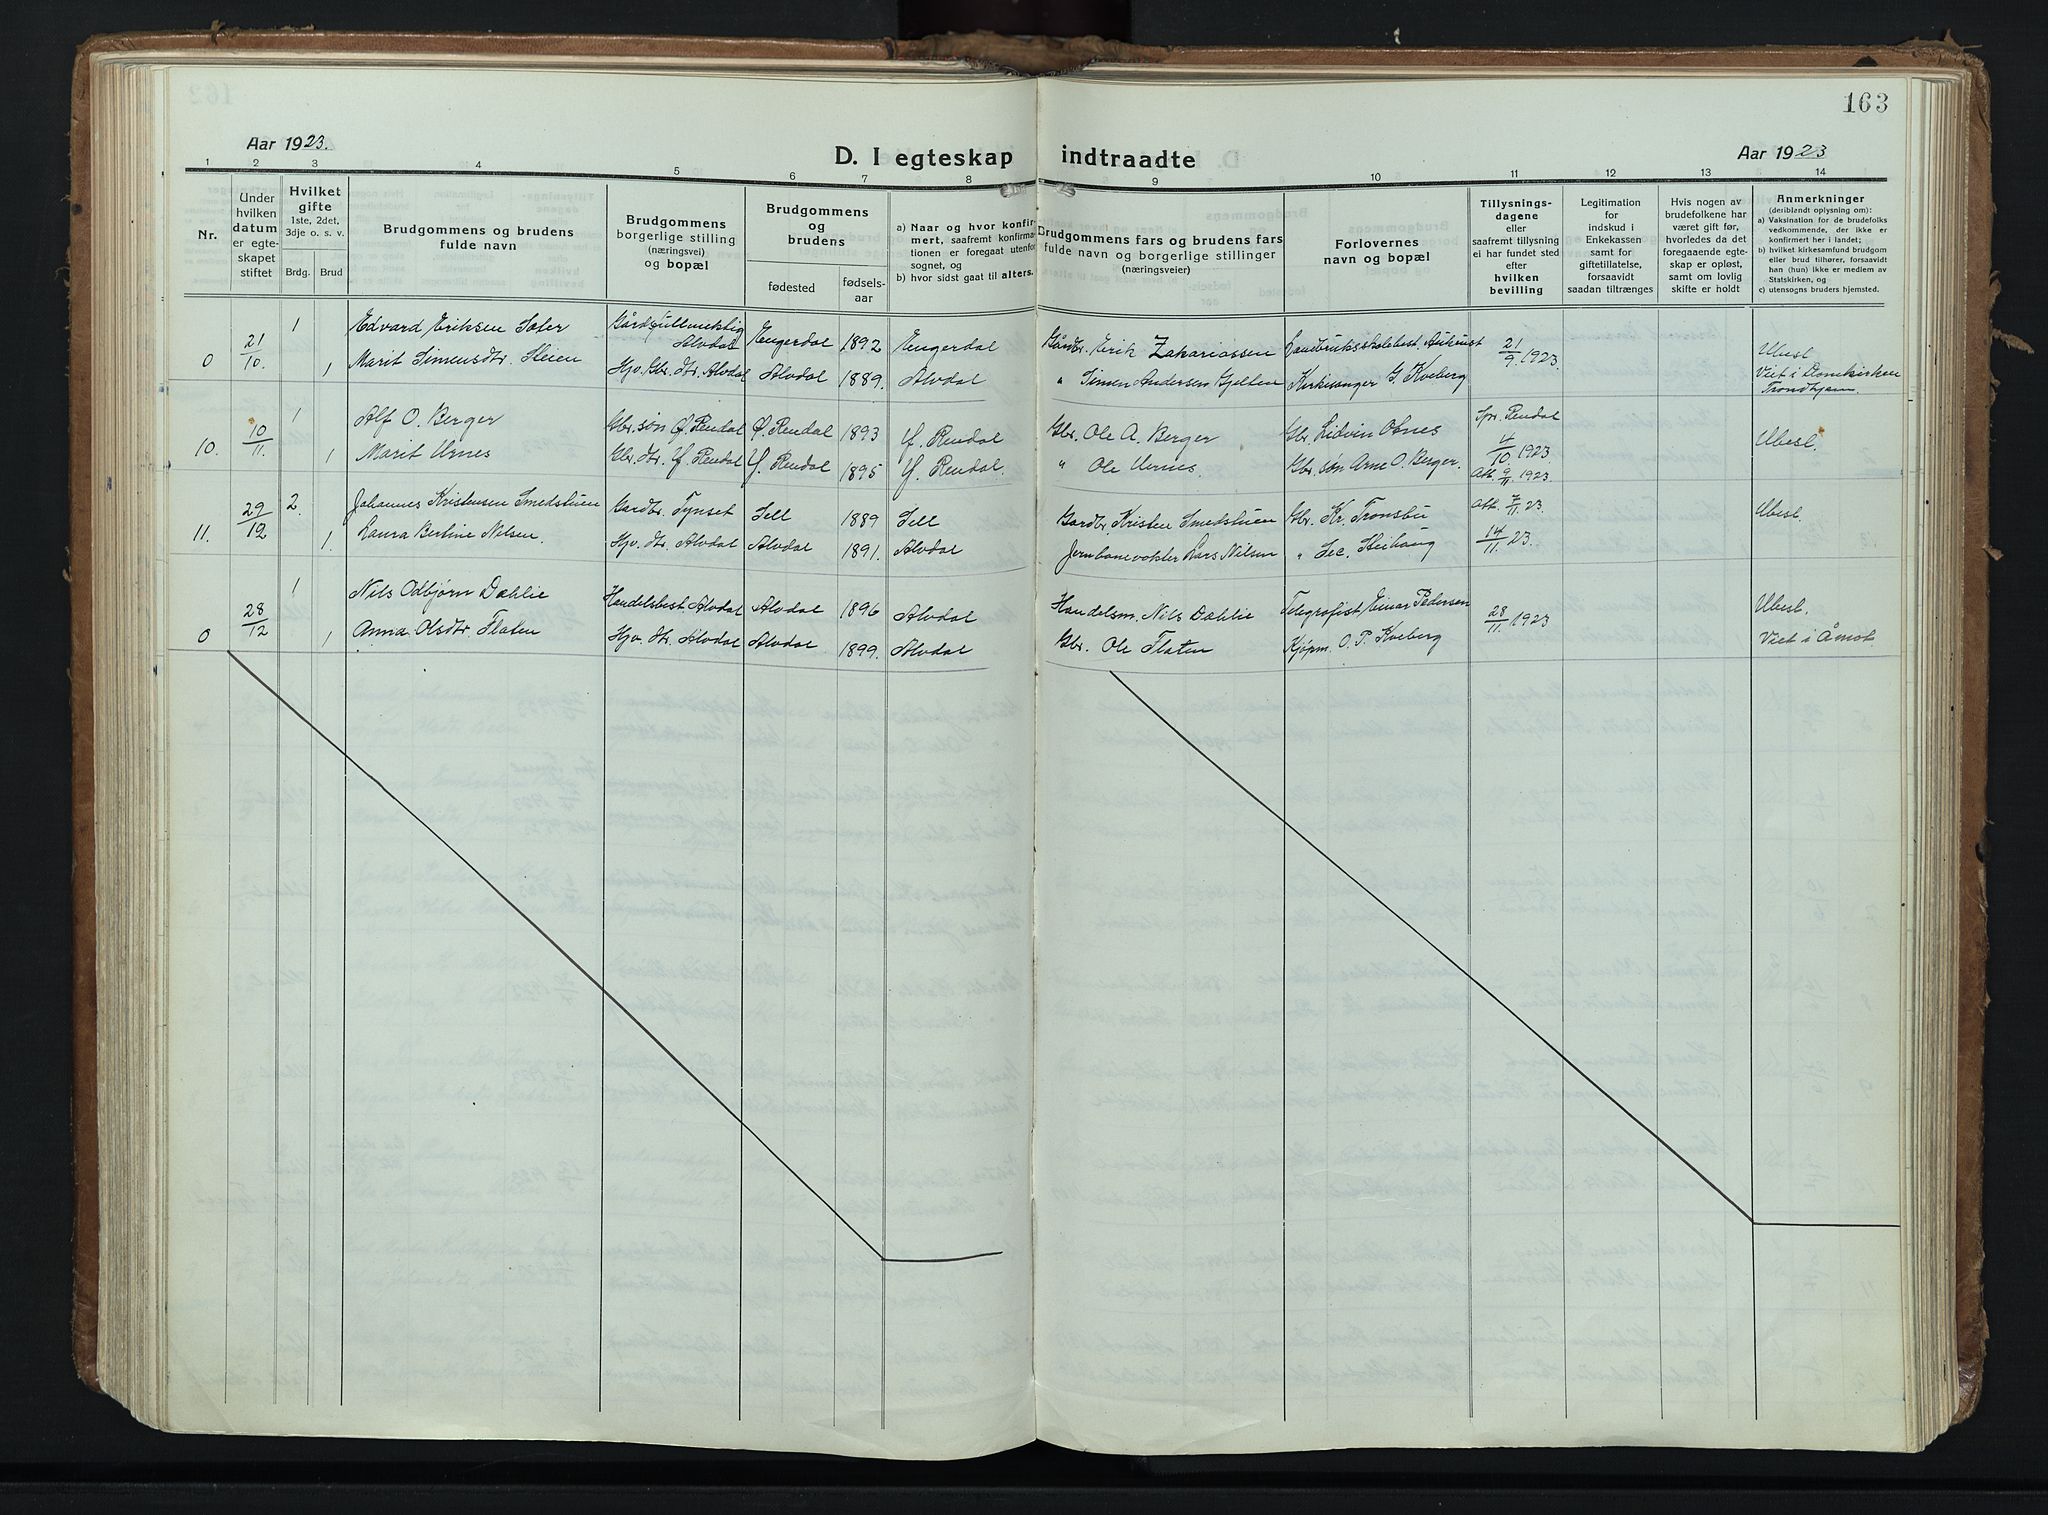 163
Aar 1923.
D. I egteskap indtraadte
Aar 1923
1 2 3 4 5 6 7 8 9 10 11 12 13 14
Nr.
Under
hvilken
datum
er egte-
skapet
stiftet
Hvilket
gifte
1ste, 2det,
3dje o. s. v.
Brdg. Brud
Brudgommens og brudens
fulde navn
Brudgommens
borgerlige stilling
(næringsvei)
og bopæl
Brudgommens
og
brudens
fødested
fødsels-
aar
a) Naar og hvor konfir-
mert, saafremt konfirma-
tionen er foregaat utenfor
sognet, og
b) hvor sidst gaat til alters.
Brudgommens fars og brudens fars
fulde navn og borgerlige stillinger
(næringsveier)
Forlovernes
navn og bopæl
Tillysnings-
dagene
eller
saafremt tillysning
ei har fundet sted
efter
hvilken
bevilling
Legitimation
for
indskud i
Enkekassen
samt for
giftetillatelse,
forsaavidt
saadan tiltrænges
Hvis nogen av
brudefolkene har
været gift før,
hvorledes da det
foregaaende egte-
skap er opløst,
samt om lovlig
skifte er holdt
Anmerkninger
(deriblendt oplysning om):
a) Vaksination for de brudefolks
vedkommende, der ikke er
konfirmert her i landet;
b) hvilket kirkesamfund brudgom
eller brud tilhører, forsaavidt
han (hun) ikke er medlem av
Statskirken, og
c) utensogns bruders hjemsted.
0 21/10. 1 Edvard Eriksen Sæter Gårdsfullmektig Alvdal Engerdal 1892 Engerdal Gårdbr. Erik Zakariassen Landbruksskolebest. Aukrust 21/9. 1923. Ubesl.
1 Marit Simensdtr. Steien Hjv. Gbr. dtr. Alvdal Alvdal 1889. Alvdal " Simen Andersen Gjelten Kirkesanger G. Kveberg Viet i Domkirken
Trondhjem.
10. 10/11. 1 Alf O. Berger Gbr. søn Ø. Rendal Ø. Rendal 1893 Y. Rendal Gbr. Ole A. Berger Gbr. Lidvin Otnes Spr. Rendal Ubesl.
1 Marit Urnes Gbr. dtr. Y. Rendal Y. Rendal 1895 Y. Rendal. " Ole Urnes. Gbr. søn Arne O. Berger. 4/10. 1923
Att. 9/11. 1923.
11. 29/12 2. Johannes Kristensen Smedstuen Gardbr. Tynset Sell 1889 Sell Gardbr. Kristen Smedstuen Gbr. Kr. Tronsbu Att. 7/11. 23. Ubesl.
1. Laura Bertine Nilsen. Hjv. dtr. Alvdal Alvdal 1891. Alvdal Jernbanevokter Lars Nilsen " Steihaug 14/11. 23.
0 28/12 1 Nils Odbjørn Dahlie Handelsbest. Alvdal Alvdal 1896 Alvdal Handelsm. Nils Dahlie Telegrafist Einar Pedersen 28/11. 1923 Ubesl.
1 Anna Olsdtr. Flaten Hjv. dtr. Alvdal Alvdal 1899. Alvdal Gbr. Ole Flaten Kjøpm. O. P. Kveberg Viet i Åmot.